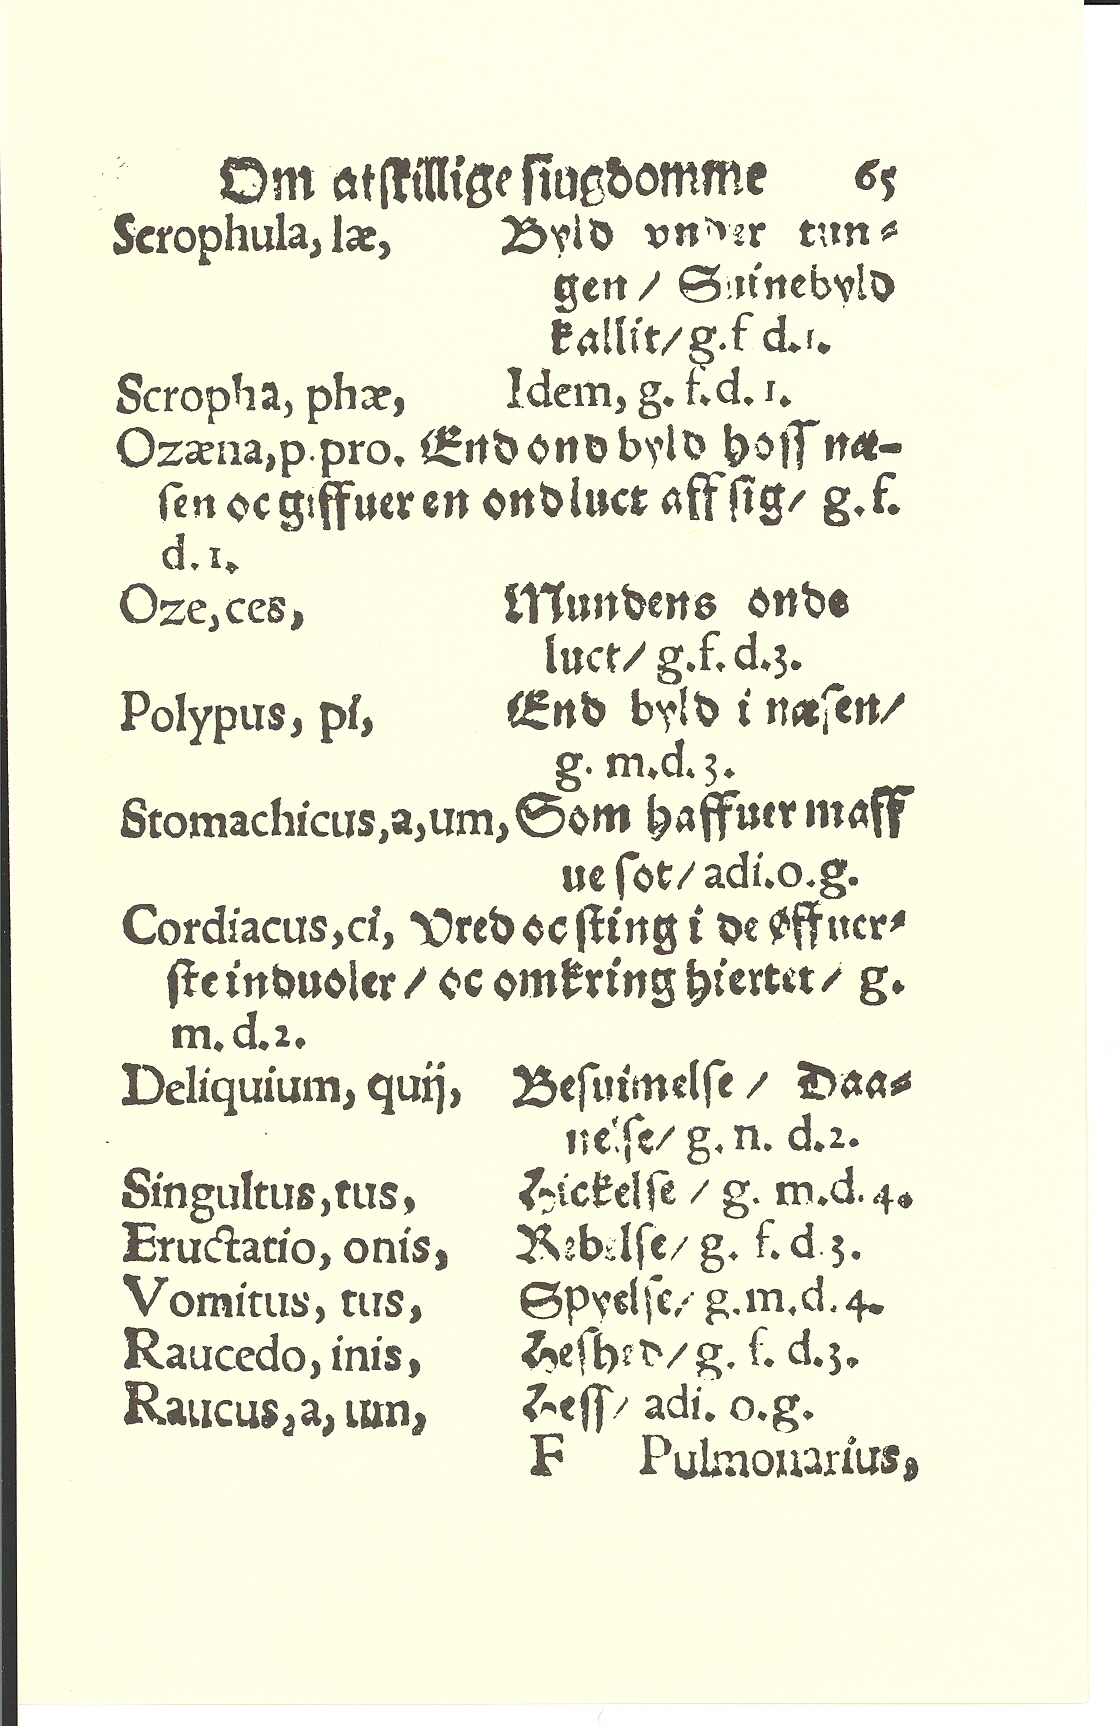 Om atskillige siugdomme 65
Scrophula, læ, Byld vnder tun-
gen / Suinebyld
kallit/ g.f d.1.
Scropha, phæ, Idem, g. f.d. 1.
Ozæna,p.pro. End ond byld hoss næ-
sen oc giffuer en ond luct aff sig/ g.f.
d.1.
Oze,ces, Mundens onde
luct/ g.f. d.3.
Polypus, pi, End byld i næsen/
g. m.d.3.
Stomachicus,a,um, Som haffuer maff
ue sot/ adi.o.g.
Cordiacus,ci, Vred oc sting i de øffuer-
ste induoler / oc omkring hiertet/ g.
m. d.2.
Deliquium, quij, Besuimelse / Daa-
nelse/ g. n. d.2.
Singultus,tus, Hickelse / g. m.d.4.
Eructatio, onis, Rebelse/ g. f. d.3.
Vomitus, tus, Spyelse/ g.m.d.4.
Raucedo, inis, Heshed/ g. f. d.3.
Raucus,a, um, Hess/ adi. o.g.
F Pulmonarius,